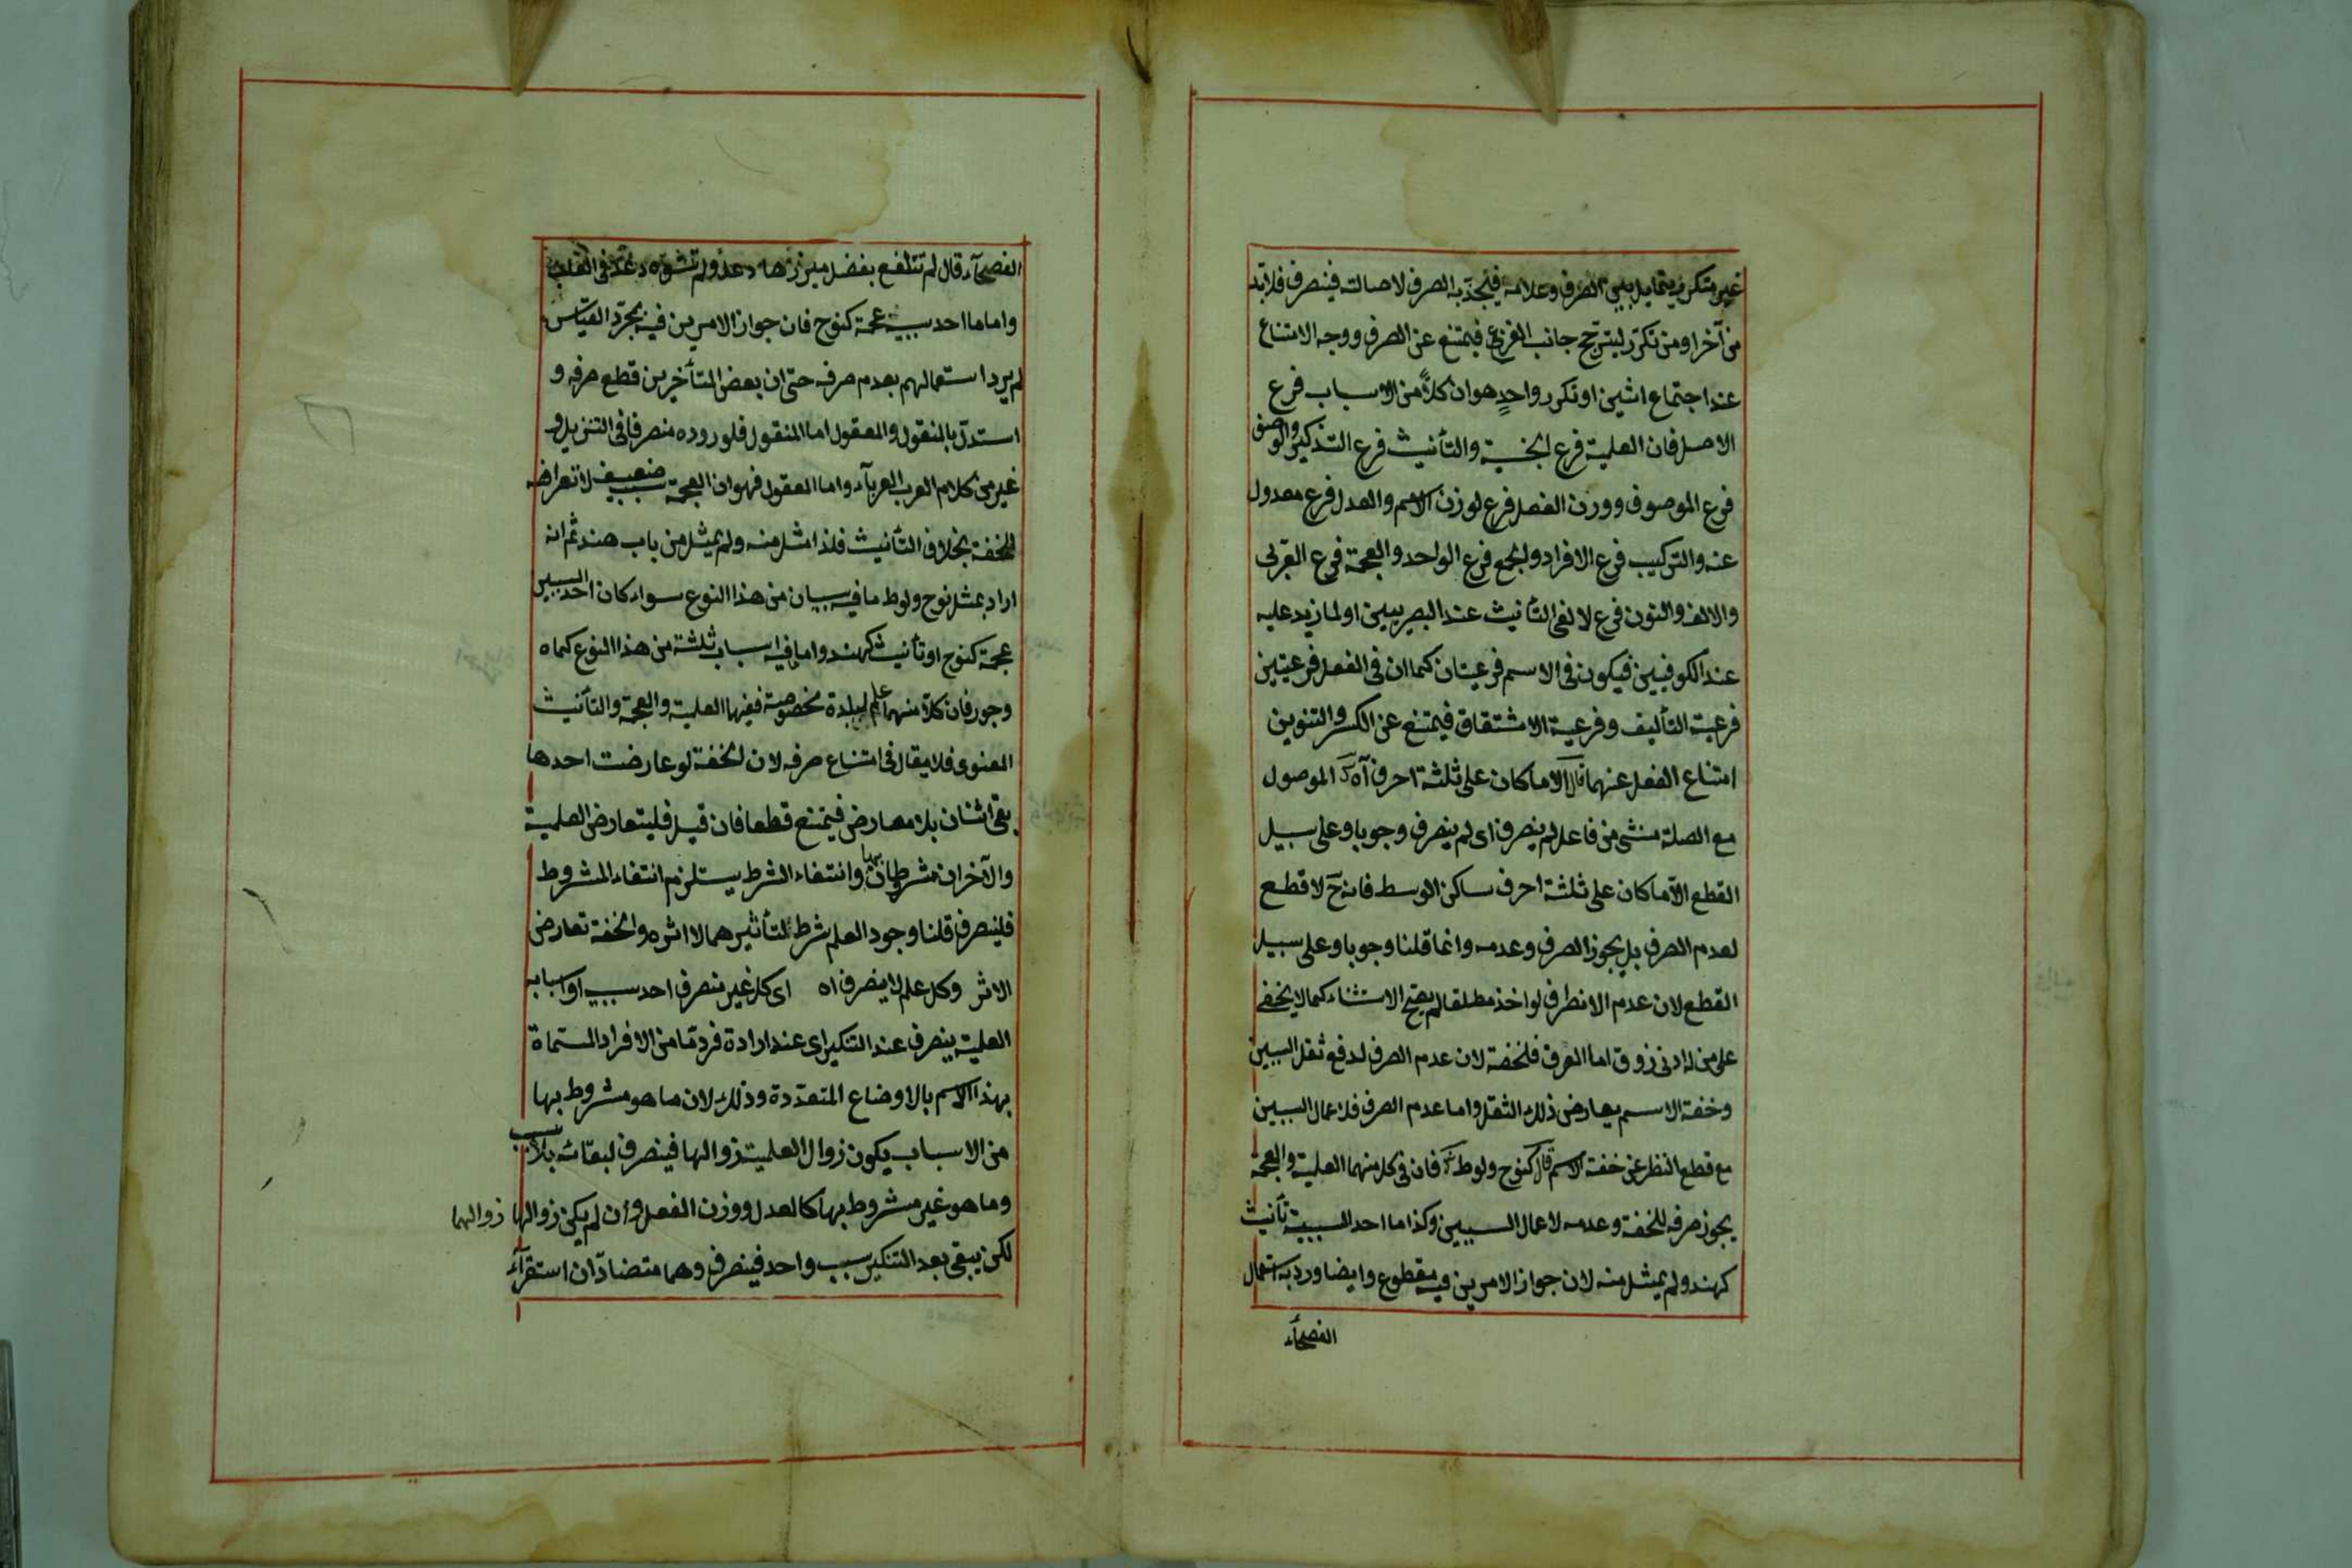 غير متكرر يتمايل بين الصرف وعدمه فيجذبه الصرف لاصالته فينصرف فلا بد
من آخر او من تكرر ليترجح جانب الفرعي فيمتنع عن الصرف ووجه الامتناع
عند اجتماع اثنين او تكرر واحد هو ان كلاً من الاسباب فرع
الاصل فان العلمية فرع الجنسية والتأنيث فرع التذكير والوصف
فرع الموصوف ووزن الفعل فرع لوزن الاسم والعدل فرع معدول
عنه والتركيب فرع الافراد والجمع فرع الواحد والعجمة فرع العربي
والالف والنون فرع لالفى التأنيث عند البصريين او لما زيد عليه
عند الكوفيين فيكون فى الاسم فرعيتان كما ان فى الفعل فرعيتين
فرعية التأليف وفرعية الاشتقاق فيمتنع عن الكسر والتنوين
امتناع الفعل عنهما قال الا ما كان على ثلثة احرف آه الموصول
مع الصلة مستثنى من فاعل لم ينصرف اى لم ينصرف وجوبا وعلى سبيل
القطع الا ما كان على ثلثة احرف ساكن الوسط فانه ح لا قطع
لعدم الصرف بل يجوز الصرف وعدمه وانما قلنا وجوبا وعلى سبيل
القطع لان عدم الانصراف لو اخذ مطلقا لم يصح الاستثناء كما لا يخفى
على من له ادنى ذوق اما الصرف فلخفته لان عدم الصرف لدفع ثقل السببين
وخفة الاسم يعارض ذلك الثقل واما عدم الصرف فلاعمال السببين
مع قطع النظر عن خفة الاسم قال كنوح ولوط فان فى كل منهما العلمية والعجمة
يجوز صرفه للخفة وعدمه لاعمال السببين وكذا ما احد السببية تأنيث
كهند ولم يمثل منه لان جواز الامرين فيه مقطوع وايضا ورد به استعمال
الفصحآء
الفصحآء قال لم تتلفع بفضل ميزرها دعد ولم تشوه دعد فى العلب
واما ما احد سببية عجمة كنوح فان جواز الامرين فيه بمجرد القياس
لم يرد استعمالهم بعدم صرفه حتى ان بعض المتأخرين قطع صرفه و
استدل بالمنقول والمعقول اما المنقول فلوروده منصرفا فى التنزيل و
غير من كلام العرب العربآء واما المعقول فهو ان العجمة سبب ضعيف لا تعارض
للخفة بخلاف التأنيث فلذا مثل منه ولم يمثل من باب هند ثم انه
اراد بمثل نوح ولوط ما فيه سببان من هذا النوع سواء كان احد السببين
عجمة كنوح او تأنيث كهند واما ما فيه اسباب ثلثة من هذا النوع كماه
وجور فان كلا منهما علم لبلدة مخصوصة ففيها العلمية والعجمة والتأنيث
المعنوى فلا يقال فى امتناع صرفه لان الخفة لو عارضت احدها
بقى اثنان بلا معارض فيمتنع قطعا فان قيل فليتعارض العلمية
والآخران مشروطان بها وانتفاء الشرط يستلزم انتفاء المشروط
فلينصرف قلنا وجود العلم شرط لتأثيرهما لا اثره والخفة تعارض
الاثر وكل علم لا ينصرف اه اى كل غير منصرف احد سببيه او اسبابه
العلمية ينصرف عند التنكير اى عند ارادة فرد ما من الافراد المسماة
بهذا الاسم بالاوضاع المتعددة وذلك لان ما هو مشروط بها
من الاسباب يكون زوال العلمية زوالها فينصرف لبقائه بلا سبب
وما هو غير مشروط بها كالعدل ووزن الفعل وان لم يكن زوالها زوالهما
لكن يبقى بعد التنكير سبب واحد فينصرف وهما متضادان استقرآء